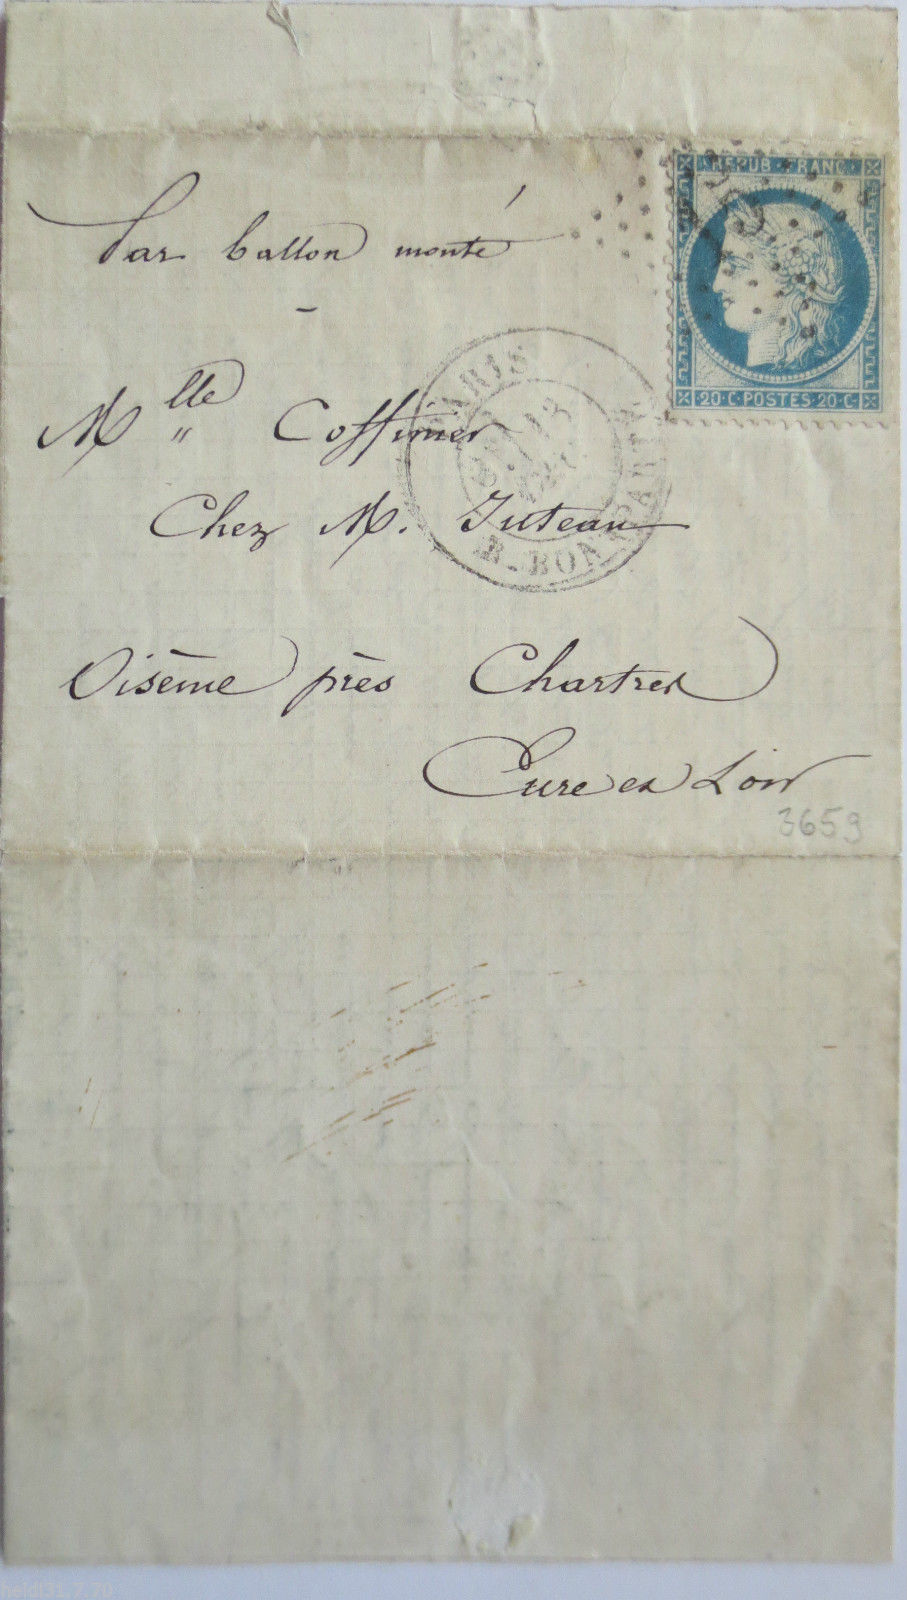 Par ballon monté
REPUB · FRANC ·
20 · C · POSTES · 20 · C ·
Mlle Coffinier
Chez M. Juteau
PARIS
R. BONAPARTE
Oisème près Chartres
Eure et Loir
3659
heidi31.7.70